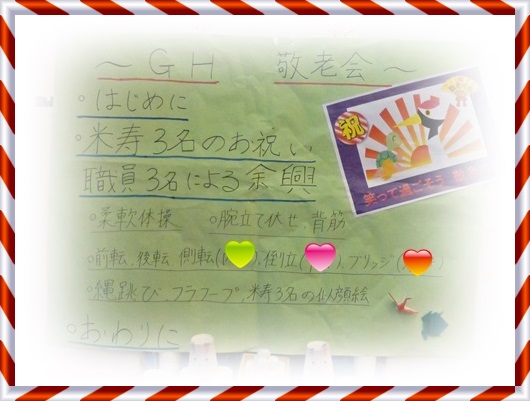 ～ＧＨ　敬老会～
・はじめに
・米寿３名のお祝い
職員３名による余興
・柔軟体操　・腕立て伏せ、背筋
・前転、後転、側転(　)、倒立(　)、ブリッジ(　)
・縄跳び、フラフープ、米寿３名の似顔絵
・おわりに
祝
笑って過ごそう